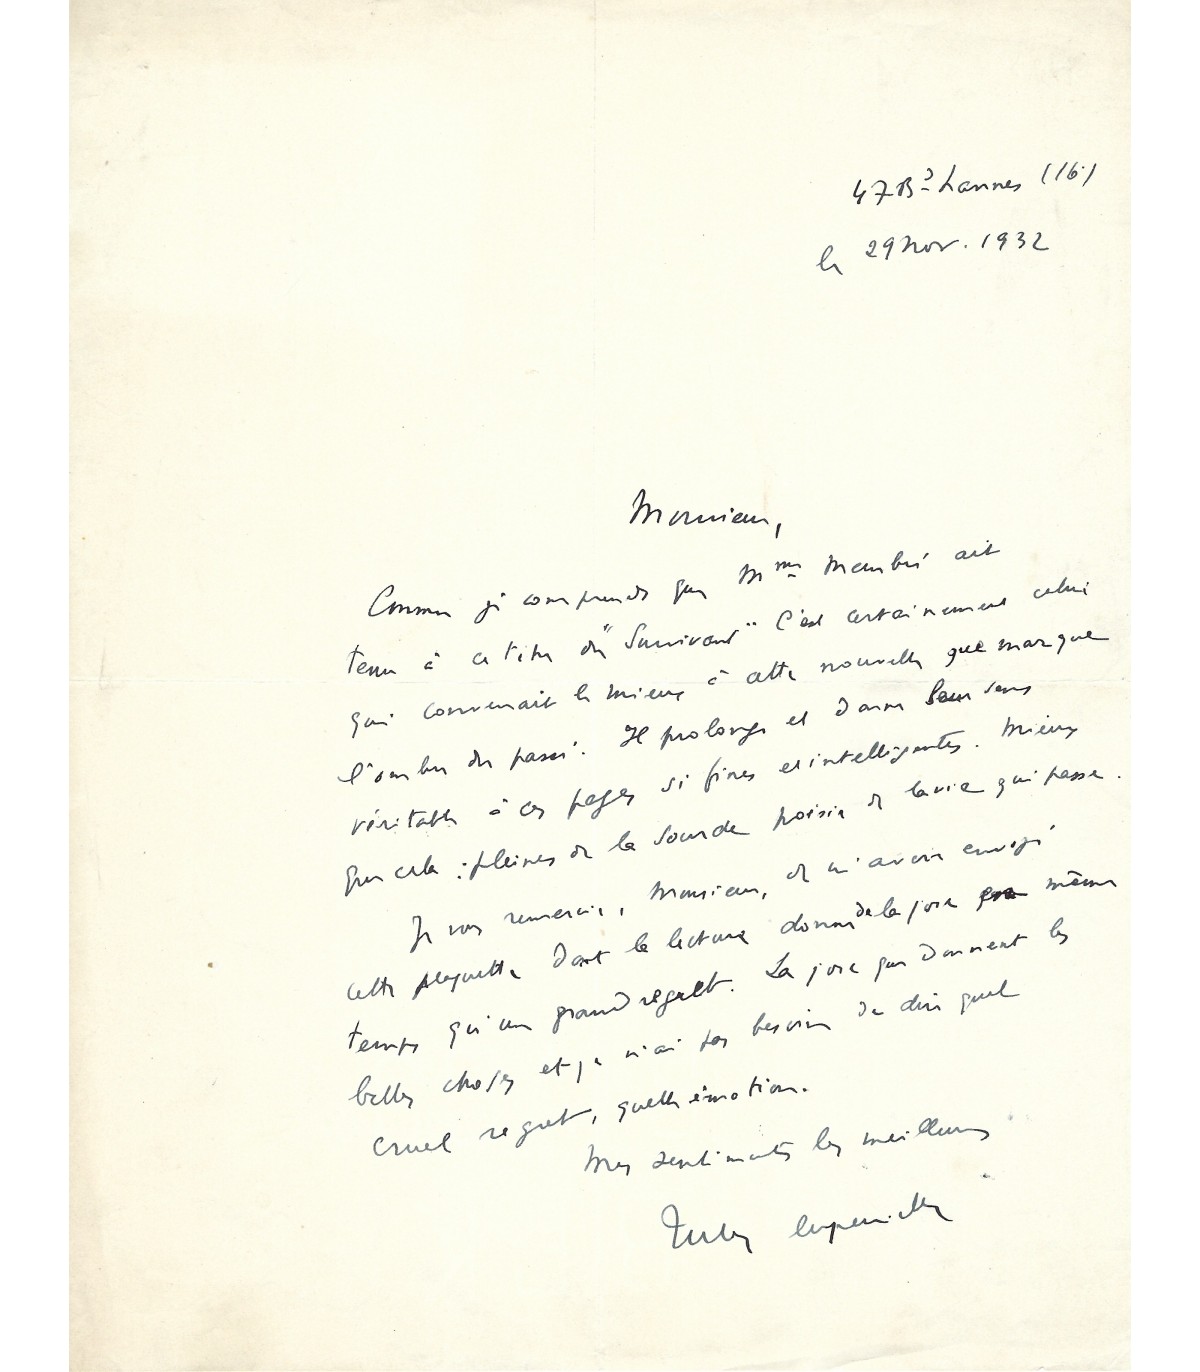 47 Bd Lannes (16)
le 29 Nov. 1932
Monsieur,
Comme je comprends que Mme Membré ait
tenu à ce titre du "Survivant" C'est certainement celui
qui convenait le mieux à cette nouvelle que marque
l'ombre du passé. Il prolonge et donne leur sens
véritable à ces pages si fines et intelligentes. Mieux
que cela : pleines de la sourde poésie de la vie qui passe.
Je vous remercie, Monsieur, de m'avoir envoyé
cette plaquette dont la lecture donne de la joie en même
temps qu'un grand regret. La joie que donnent les
belles choses et je n'ai pas besoin de dire quel
cruel regret, quelle émotion.
Mes sentiments les meilleurs
Jules Supervielle